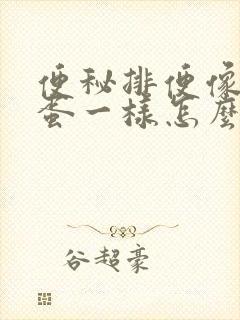 便秘排便像
蛋一样怎麽
谷超豪